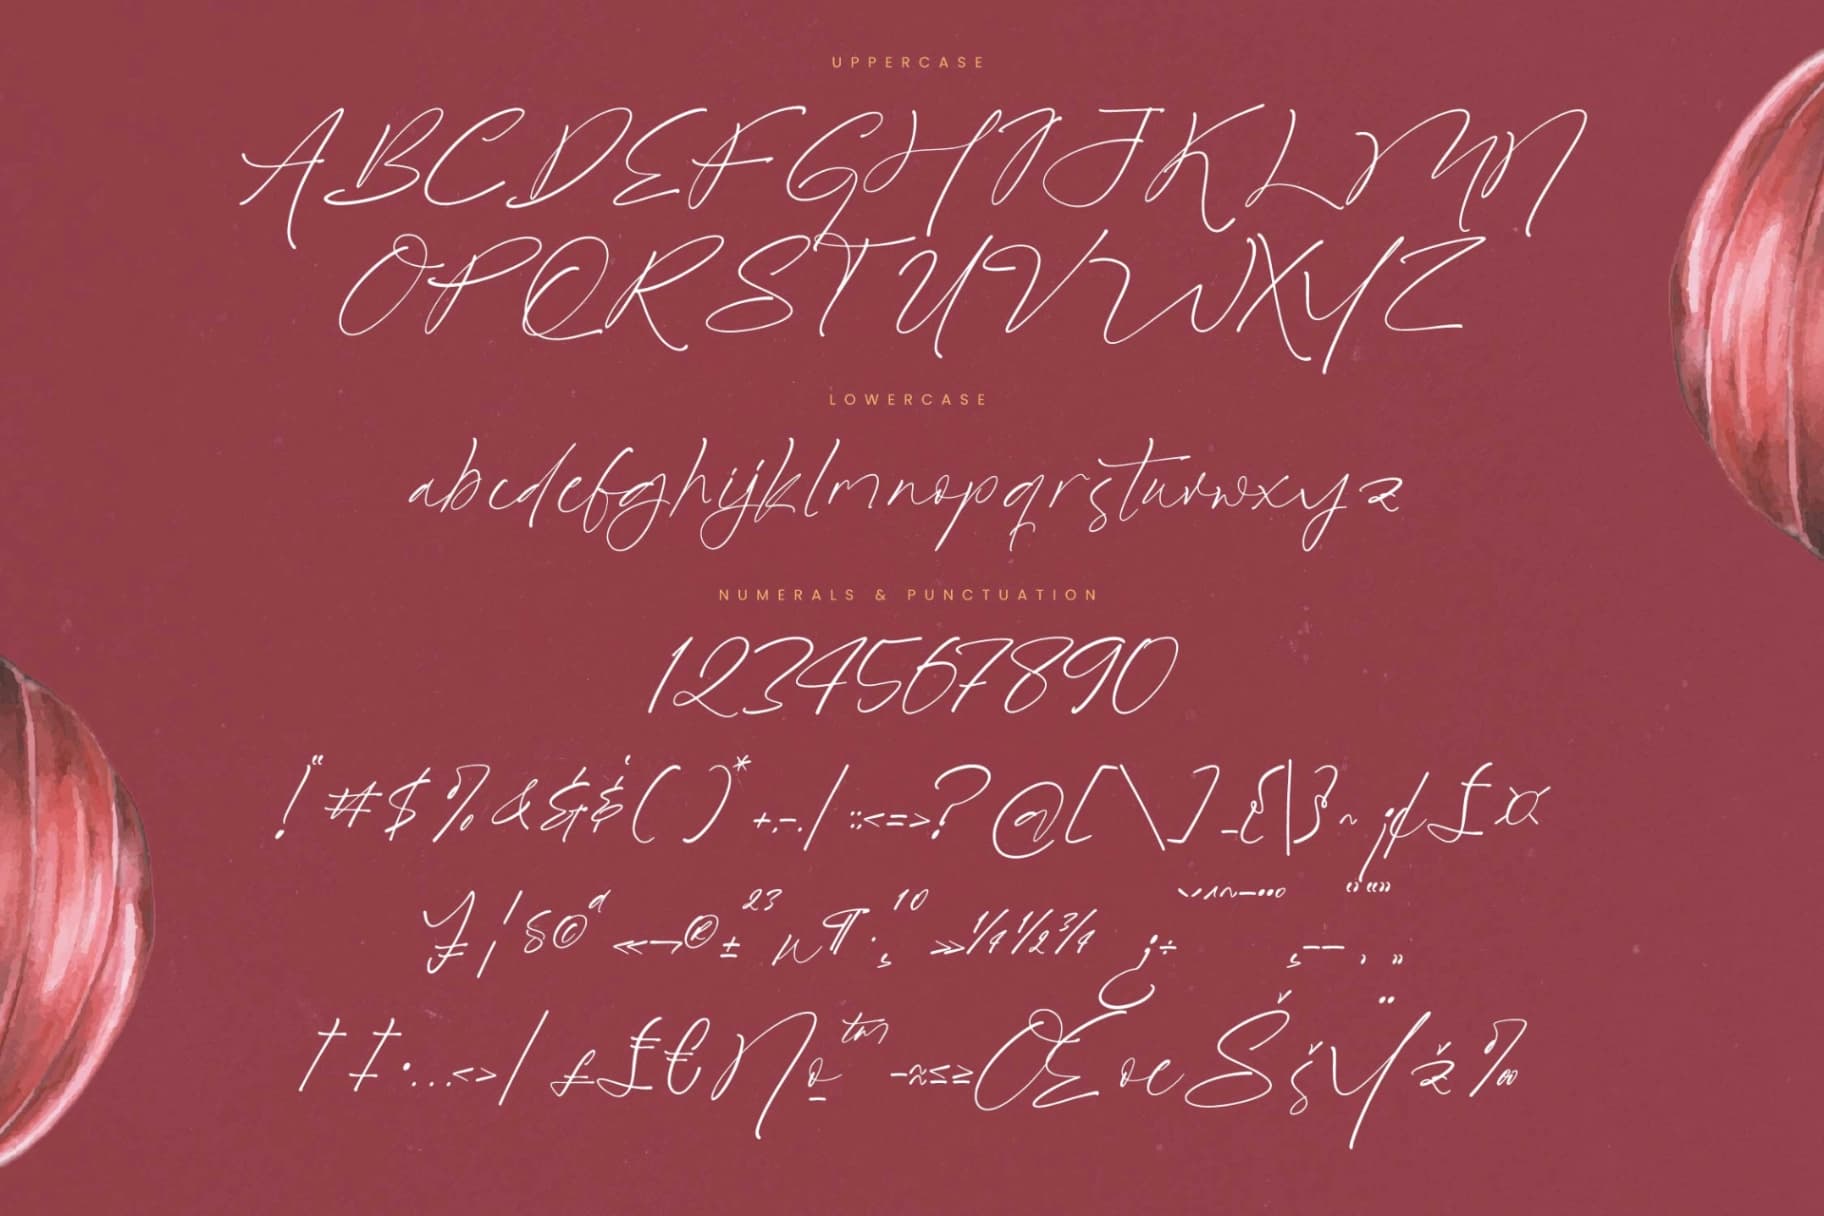 UPPERCASE
ABCDEFGHIJKLMN
OPQRSTUVWXYZ
LOWERCASE
abcdefghijklmnopqrstuvwxyz
NUMERALS & PUNCTUATION
1234567890
!"#$%&'()*+,-./:;<=>?@[\]_{|}~¡¢£¤
¥¦§©ª«¬®±²³µ¶·¸¹º»¼½¾¿÷
†‡•…‹›⁄₤€№™−≈≤≥ŒœŠšŸž‰